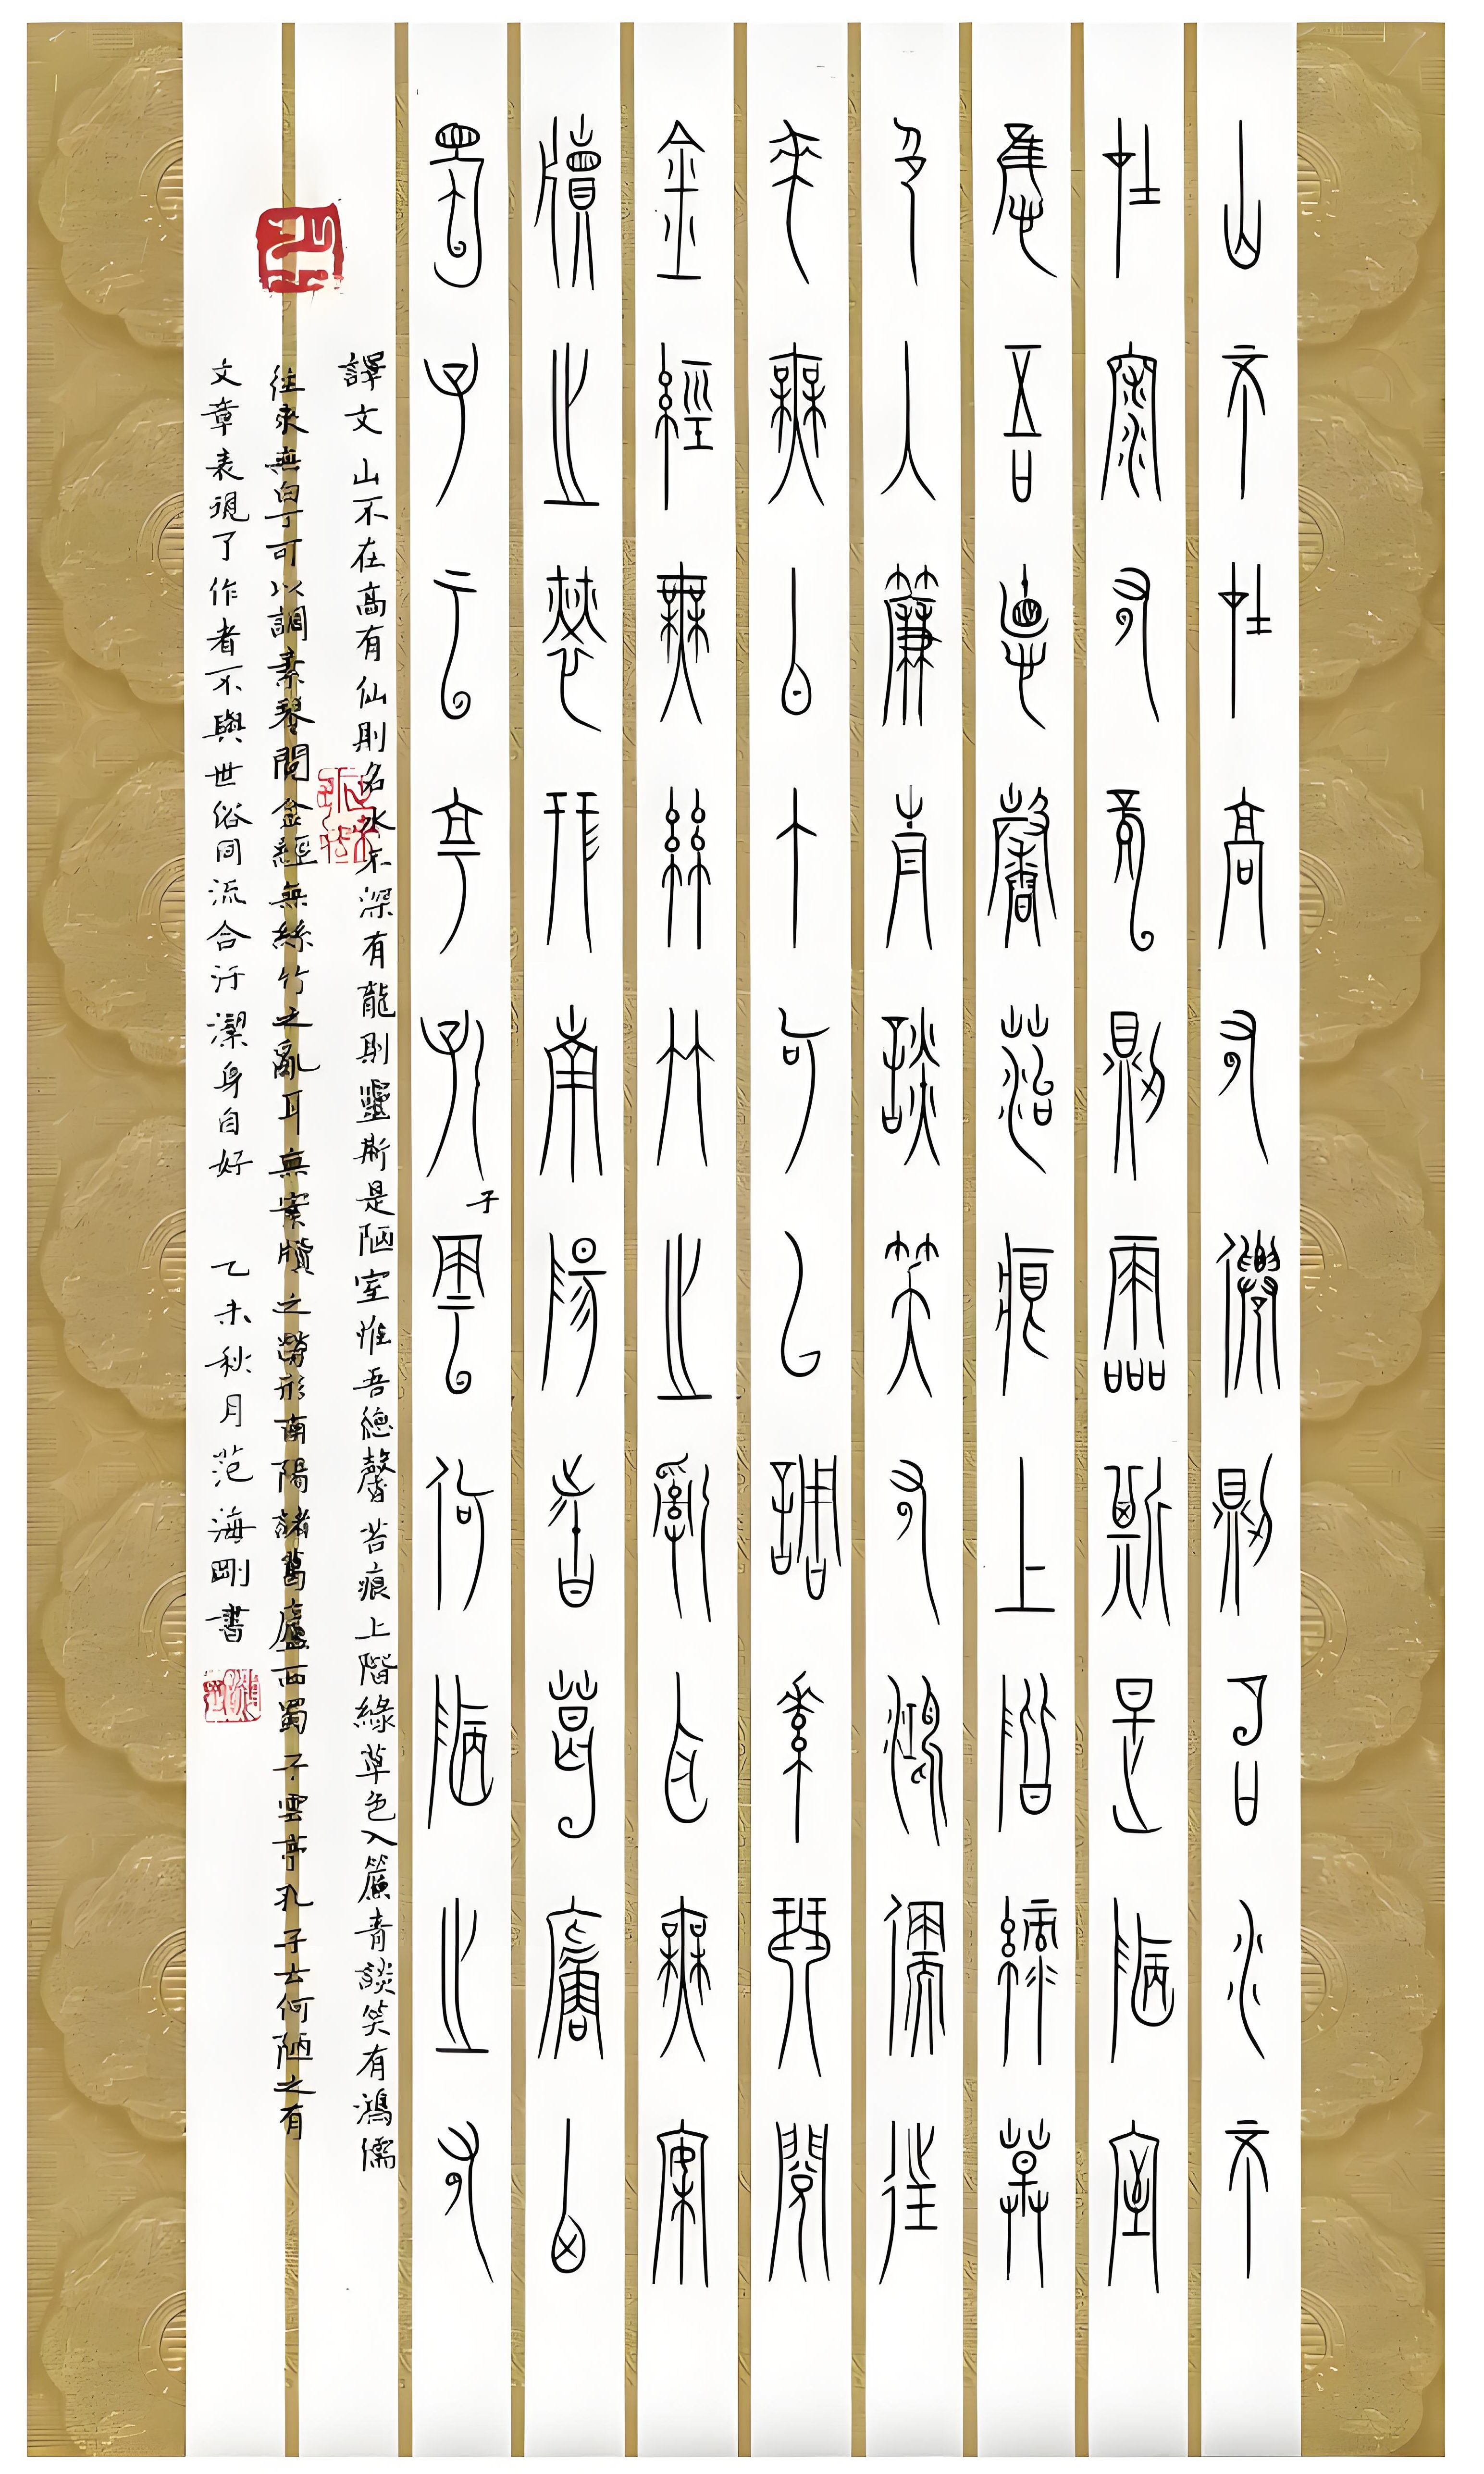 山不在高有僊則名水不
在深有龍則霝斯是陋室
惟吾悳馨菭痕上階綠草
色入簾青談笑有鴻儒往
來無白丁可以調素琴閱
金經無絲竹之亂耳無案
牘之勞形南陽者葛廬西
蜀子云亭孔子雲何陋之有
譯文 山不在高有仙則名水不深有龍則靈斯是陋室惟吾德馨苔痕上階綠草色入簾青談笑有鴻儒
往來無白丁可以調素琴閱金經無絲竹之亂耳無案牘之勞形南陽諸葛廬西蜀子雲亭孔子云何陋之有
文章表現了作者不與世俗同流合汙潔身自好 乙未秋月范海剛書